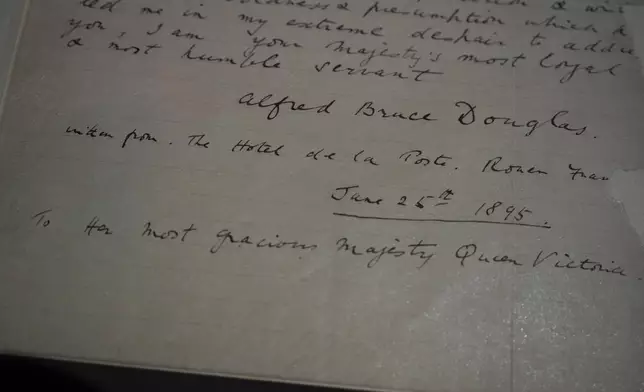 boldness & presumption which h
led me in my extreme despair to addre
you, I am your Majesty's most loyal
& most humble servant
Alfred Bruce Douglas.
written from. The Hotel de la Poste. Rouen Fran
June 25th 1895.
To Her Most Gracious Majesty Queen Victoria.